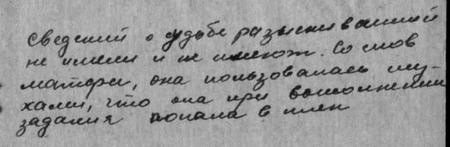 сведений о судьбе разыскиваемой
не имели и не имеют. Со слов
матери, она пользовалась слу-
хами, что она при выполнении
задания попала в плен